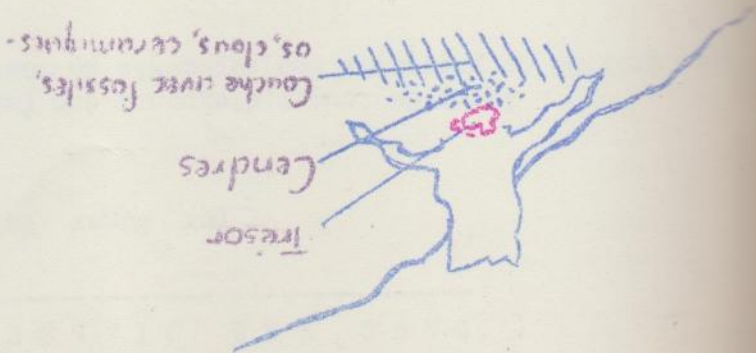 Trésor
Cendres
Couche avec fossiles,
os, clous, céramiques.